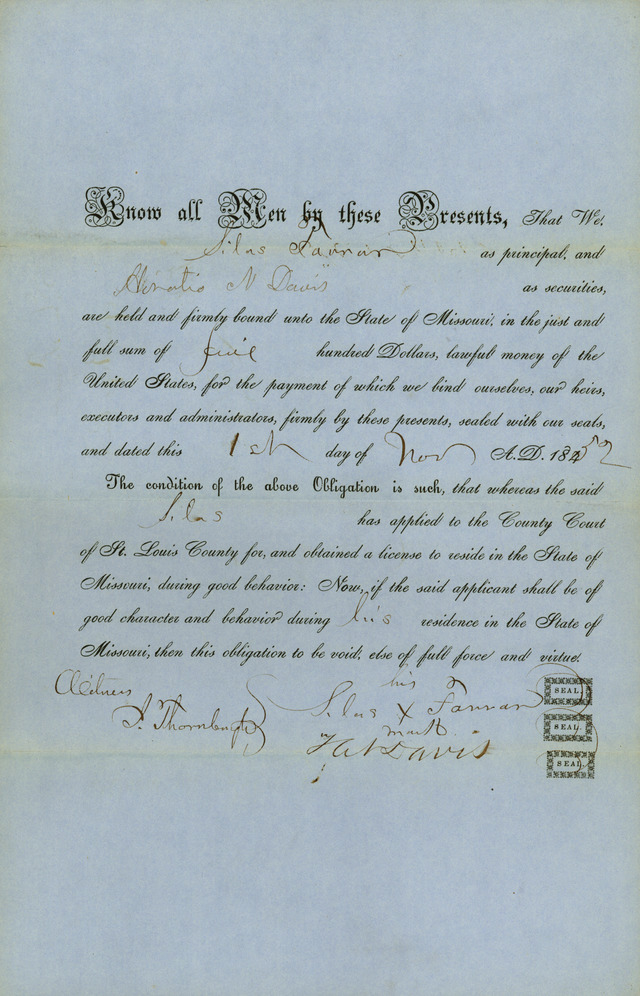 Know all Men by these Presents, That We,
Silas Farrar as principal, and
Horatio N Davis as securities,
are held and firmly bound unto the State of Missouri, in the just and
full sum of five hundred Dollars, lawful money of the
United States, for the payment of which we bind ourselves, our heirs,
executors and administrators, firmly by these presents, sealed with our seals,
and dated this 1st day of Nov A.D. 1852
The condition of the above Obligation is such, that whereas the said
Silas has applied to the County Court
of St. Louis County for, and obtained a license to reside in the State of
Missouri, during good behavior: Now, if the said applicant shall be of
good character and behavior during his residence in the State of
Missouri, then this obligation to be void, else of full force and virtue.
Witness his SEAL.
Silas X Farrar
J. Thornburgh mark SEAL.
H N Davis SEAL.